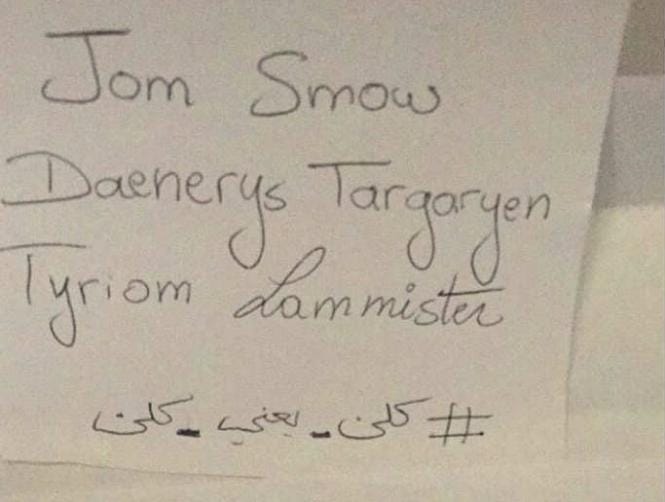 Jom Smow
Daenerys Targaryen
Tyriom Lammister
#كلن_يعني_كلن